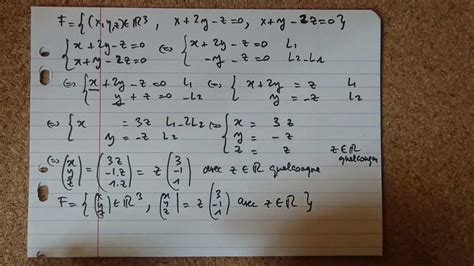 F = { (x,y,z) ∈ ℝ³, x+2y-z=0, x+y-2z=0 }
{ x+2y-z=0 ⇔ { x+2y-z=0 L₁
{ x+y-2z=0 { -y-z=0 L₂-L₁
⇔ { x+2y-z=0 L₁ ⇔ { x+2y = z L₁
{ y+z=0 -L₂ { y = -z -L₂
⇔ { x = 3z L₁-2L₂ ⇔ { x = 3z
{ y = -z L₂ { y = -z
{ z = z z∈ℝ quelconque
⇔ (x y z) = (3z -1.z 1.z) = z (3 -1 1) avec z∈ℝ quelconque
F = { (x y z) ∈ ℝ³, (x y z) = z (3 -1 1) avec z∈ℝ }